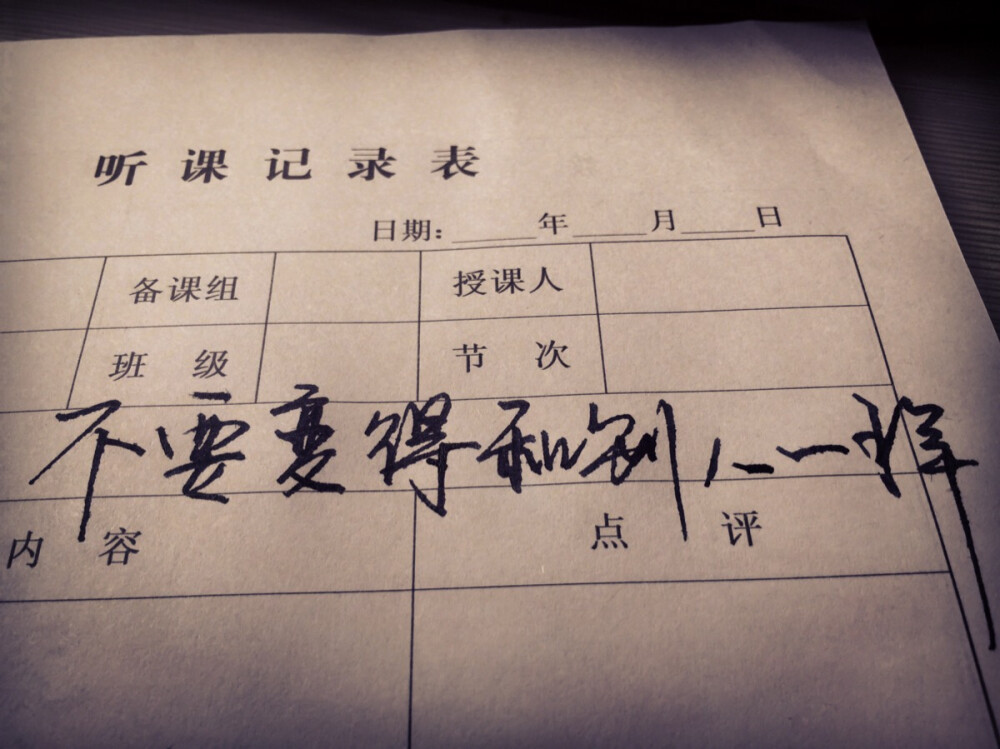 听课记录表
日期：_____年_____月_____日
备课组 授课人
班级 节次
不要变得和别人一样
内容 点评